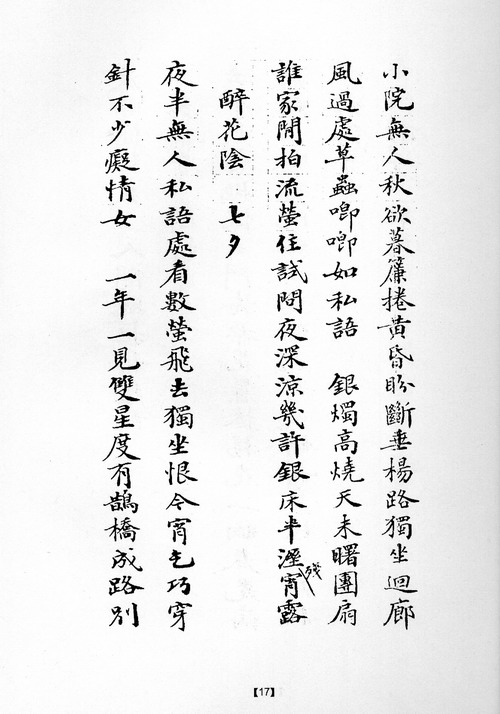 小院無人秋欲暮簾捲黃昏盼斷垂楊路獨坐迴廊
風過處草蟲唧唧如私語　銀燭高燒天未曙團扇
誰家閒拍流螢住試問夜深涼幾許銀床半溼宵露
殘
醉花陰　七夕
夜半無人私語處看數螢飛去獨坐恨今宵乞巧穿
針不少癡情女　一年一見雙星度有鵲橋成路別
【17】